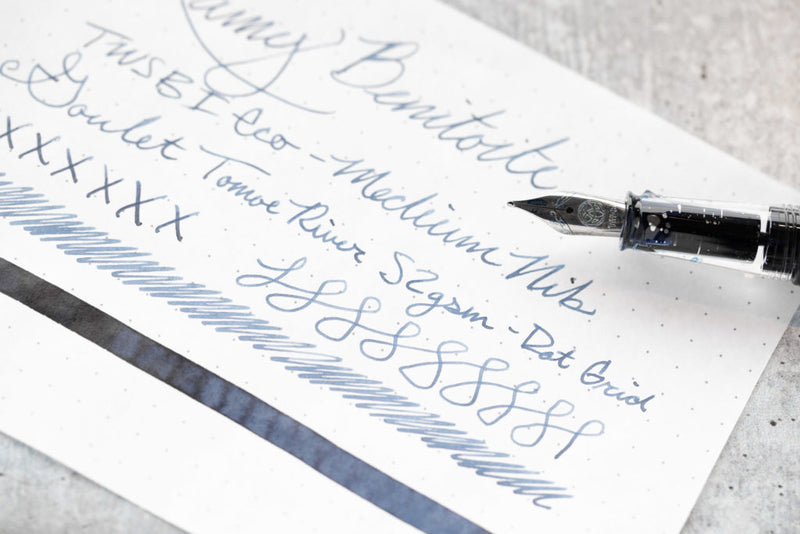 Benitoite
TWSBI Eco - Medium Nib
Goulet Tomoe River 52gsm - Dot Grid
X X X X X X X